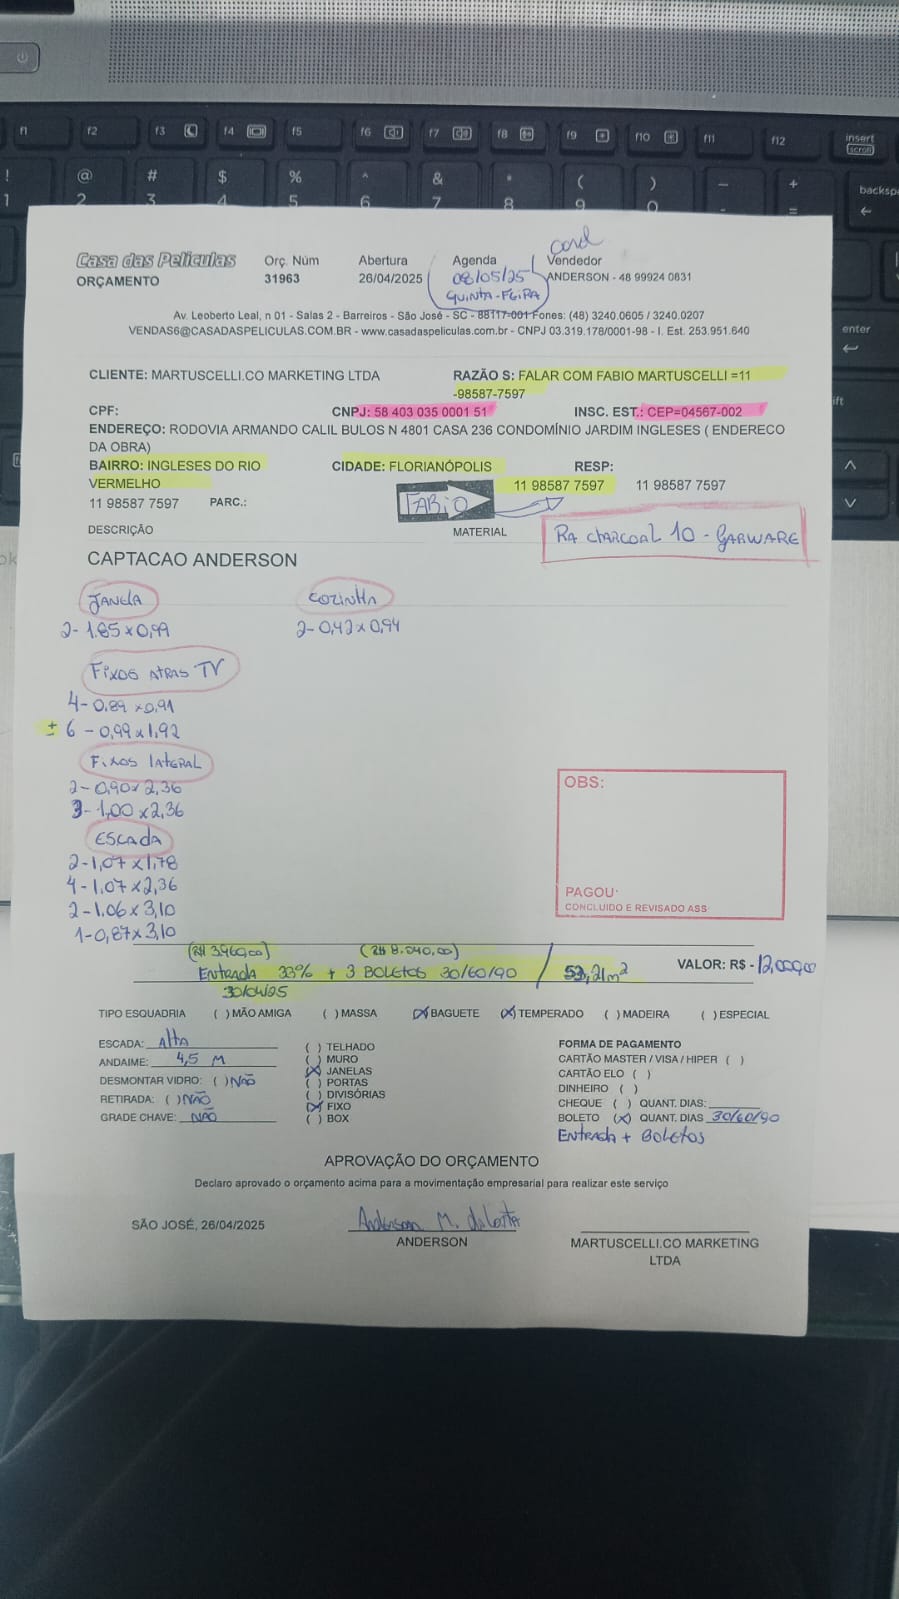 f1 f2 f3 f4 f5 f6 f7 f8 f9 f10 f11 f12 insert
scroll
! @ # $ % ^ & * ( ) — + backsp
1 2 3 4 5 6 7 8 9 0 - =
enter
ift
Casa das Películas
ORÇAMENTO
Orç. Núm
31963
Abertura
26/04/2025
Agenda
08/05/25
QUINTA-FEIRA
Vendedor
ANDERSON - 48 99924 0831
Av. Leoberto Leal, n 01 - Salas 2 - Barreiros - São José - SC - 88117-001 Fones: (48) 3240.0605 / 3240.0207
VENDAS6@CASADASPELICULAS.COM.BR - www.casadaspeliculas.com.br - CNPJ 03.319.178/0001-98 - I. Est. 253.951.640
CLIENTE: MARTUSCELLI.CO MARKETING LTDA RAZÃO S: FALAR COM FABIO MARTUSCELLI =11
-98587-7597
CPF: CNPJ: 58 403 035 0001 51 INSC. EST.: CEP=04567-002
ENDEREÇO: RODOVIA ARMANDO CALIL BULOS N 4801 CASA 236 CONDOMÍNIO JARDIM INGLESES ( ENDERECO
DA OBRA)
BAIRRO: INGLESES DO RIO CIDADE: FLORIANÓPOLIS RESP:
VERMELHO 11 98587 7597 11 98587 7597
11 98587 7597 PARC.: FABIO
DESCRIÇÃO MATERIAL RA CHARCOAL 10 - GARWARE
CAPTACAO ANDERSON
JANELA COZINHA
2- 1.85 x 0,99 2- 0,42 x 0,94
FIXOS ATRAS TV
4- 0.89 x 0,91
± 6 - 0,99 x 1,92
FIXOS LATERAL
2- 0,90 x 2,36
3- 1,00 x 2,36
ESCADA
2- 1,07 x 1,78
4- 1,07 x 2,36
2- 1.06 x 3,10
1- 0,87 x 3,10
OBS:
PAGOU:
CONCLUIDO E REVISADO ASS:
(R$ 3.960,00) (R$ 8.040,00)
ENTRADA 33% + 3 BOLETOS 30/60/90 / 53,21m² VALOR: R$ - 12,000,00
30/04/25
TIPO ESQUADRIA ( ) MÃO AMIGA ( ) MASSA (X) BAGUETE (X) TEMPERADO ( ) MADEIRA ( ) ESPECIAL
ESCADA: Alta
ANDAIME: 4,5 M
DESMONTAR VIDRO: ( ) NÃO
RETIRADA: ( ) NÃO
GRADE CHAVE: NÃO
( ) TELHADO
( ) MURO
(X) JANELAS
( ) PORTAS
( ) DIVISÓRIAS
(X) FIXO
( ) BOX
FORMA DE PAGAMENTO
CARTÃO MASTER / VISA / HIPER ( )
CARTÃO ELO ( )
DINHEIRO ( )
CHEQUE ( ) QUANT. DIAS:
BOLETO (X) QUANT. DIAS 30/60/90
ENTRADA + BOLETOS
APROVAÇÃO DO ORÇAMENTO
Declaro aprovado o orçamento acima para a movimentação empresarial para realizar este serviço
SÃO JOSÉ, 26/04/2025
Anderson M. da Costa
ANDERSON
MARTUSCELLI.CO MARKETING
LTDA